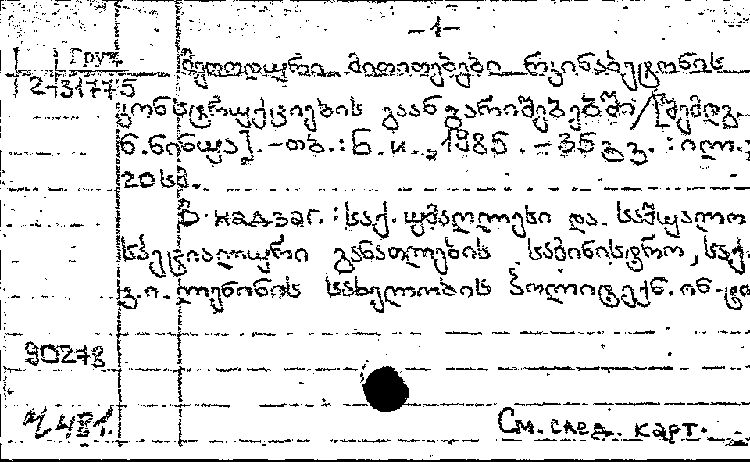 -1-
Груз. მეთოდური მითითებები რკინაბეტონის
2-31775
კონსტრუქციების გაანგარიშებებში/[შემდგ.
ნ.ნინუა].-თბ.: Б.и., 1985.-35გვ.: ილ.;
20სმ.
В надзаг.: საქ. უმაღლესი და საშუალო
სპეციალური განათლების სამინისტრო, საქ.
ვ.ი.ლენინის სახელობის პოლიტექნ. ინ-ტი
90278
481.
См. след. карт.